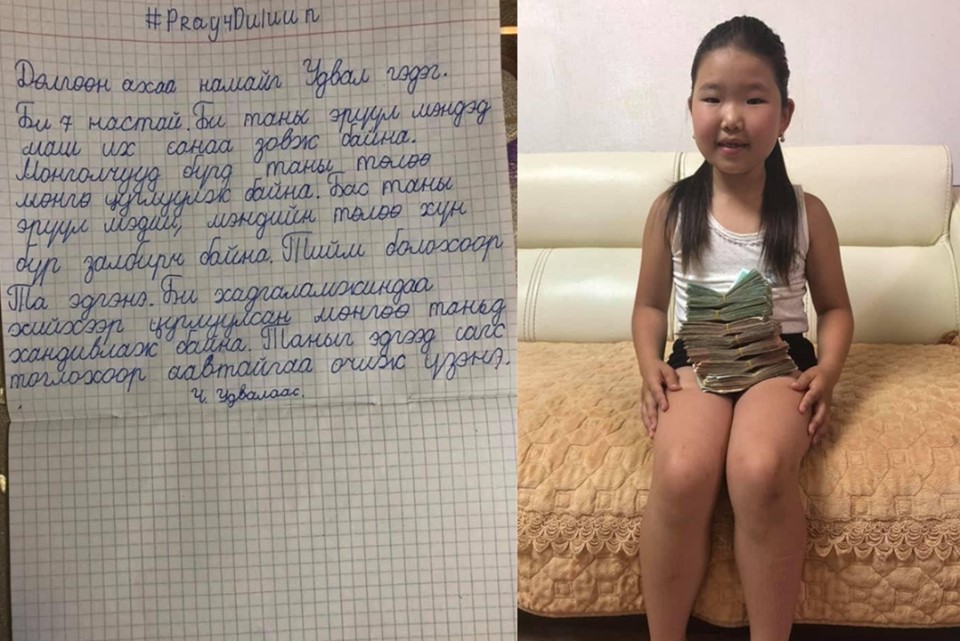 #Pray4Dulguun
Дөлгөөн ахаа намайг Удвал гэдэг.
Би 7 настай. Би таны эрүүл мэндэд
маш их санаа зовж байна.
Монголчууд бүгд таны төлөө
мөнгө цуглуулж байна. Бас таны
эрүүл мэдий, мэндийн төлөө хүн
бүр залбирч байна. Тийм болохоор
Та эдгэнэ. Би хадгаламжиндаа
хийхээр цуглуулсан мөнгөө таньд
хандивлаж байна. Таныг эдгээд сагс
тоглохоор аавтайгаа очиж үзэнэ.
Ч. Удвалаас.